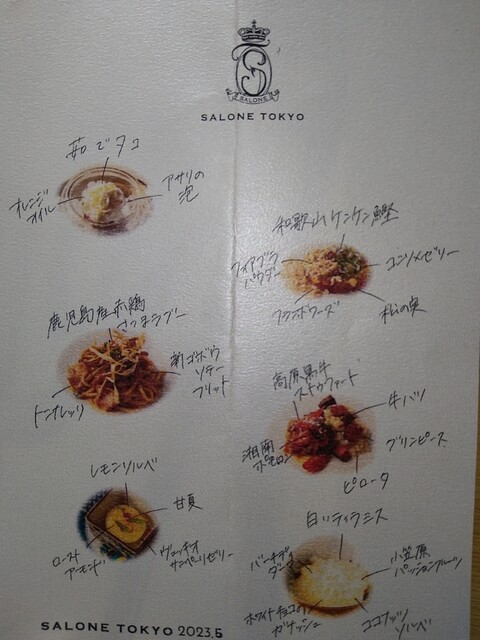 SALONE
SALONE TOKYO
茹でタコ
オレンジ
オイル
アサリの
泡
和歌山ケンケン鰹
フォアグラ
パウダー
コンソメゼリー
フランボワーズ
松の実
鹿児島産赤鶏
さつまラブー
新ゴボウ
ソテー
フリット
トンナレッリ
高原黒牛
ストゥファート
牛ハツ
湘南
ポモロン
グリンピース
ピロータ
レモンソルベ
甘夏
ロースト
アーモンド
ヴェッキオ
サンペーリゼリー
白いティラミス
バーチ・ディ
ダーマ
小笠原
パッションフルーツ
ホワイトチョコの
ガナッシュ
ココナッツ
ソルベ
SALONE TOKYO 2023.5